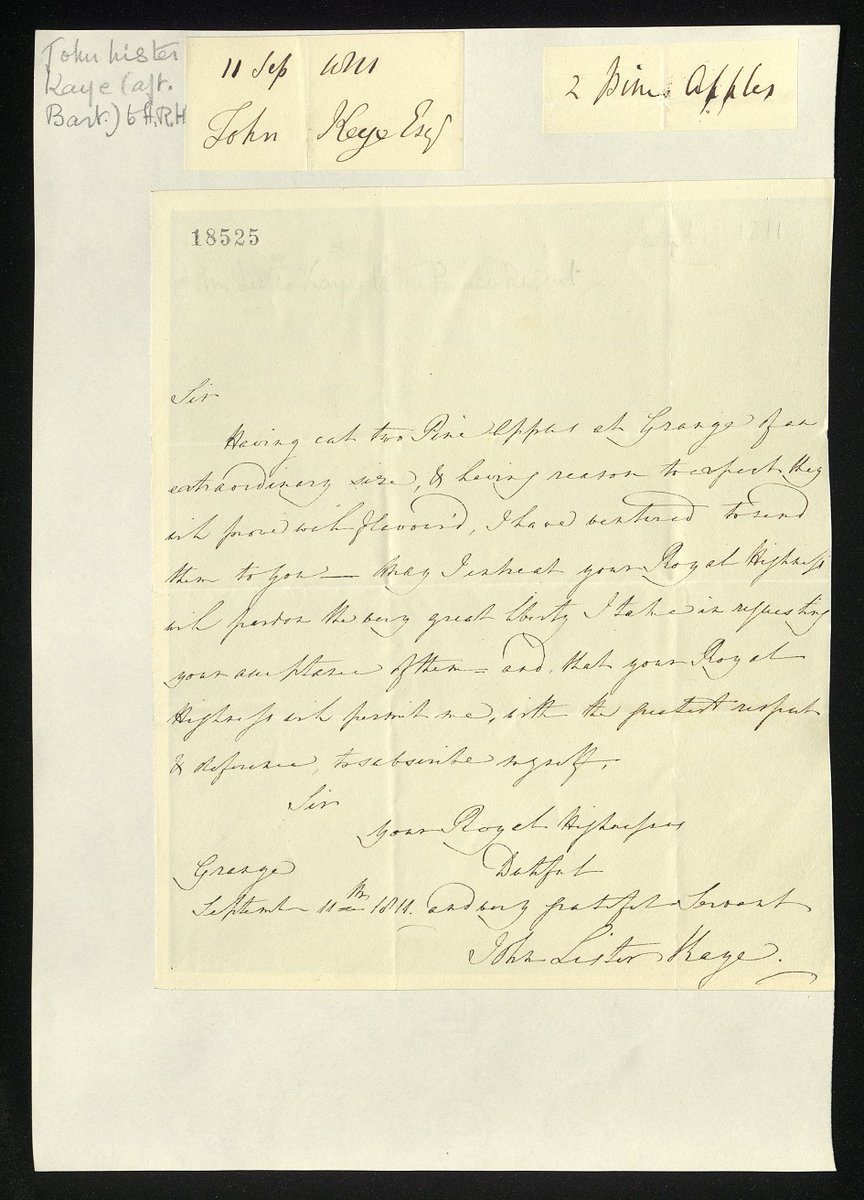 John Lister
Kaye (aft.
Bart.) to H.R.H
11 Sep 1811
John Kaye Esqr
2 Pine Apples
18525
Sir
Having cut two Pine Apples at Grange of an
extraordinary size, & having reason to expect they
will prove well flavour'd, I have ventured to send
them to You — May I entreat your Royal Highness
will pardon the very great liberty I take in requesting
your acceptance of them = and, that your Royal
Highness will permit me, with the greatest respect
& deference, to subscribe myself,
Sir
Your Royal Highnesses
Grange Dutiful
September 11th 1811. and very grateful Servant
John Lister Kaye.